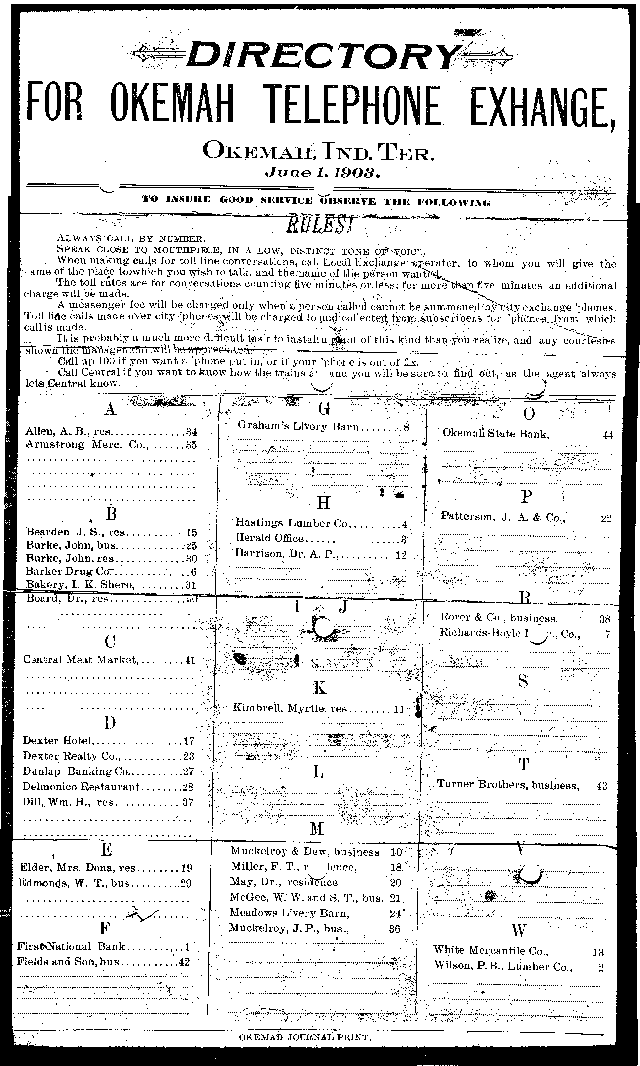 DIRECTORY
FOR OKEMAH TELEPHONE EXHANGE,
OKEMAH, IND. TER.
June 1, 1903.
TO INSURE GOOD SERVICE OBSERVE THE FOLLOWING
RULES!
ALWAYS CALL BY NUMBER.
SPEAK CLOSE TO MOUTHPIECE, IN A LOW, DISTINCT TONE OF VOICE.
When making calls for toll line conversations, call Local Exchange operator, to whom you will give the
name of the place to which you wish to talk, and the name of the person wanted.
The toll rates are for conversations counting five minutes or less; for more than five minutes an additional
charge will be made.
A messenger fee will be charged only when a person called cannot be summoned by city exchange 'phones.
Toll line calls made over city 'phones will be charged to and collected from subscribers for 'phones from which
call is made.
It is probably a much more difficult task to install a plant of this kind than you realize, and any courtesies
shown the manager will be appreciated.
Call up 100 if you want a 'phone put in, or if your 'phone is out of fix.
Call Central if you want to know how the trains and you will be sure to find out, as the agent always
lets Central know.
A
Allen, A. B., res. 34
Armstrong Merc. Co., 35
B
Bearden J. S., res. 15
Burke, John, bus. 25
Burke, John, res. 30
Barker Drug Co. 6
Bakery, I. K. Shero, 31
Board, Dr., res.
C
Central Meat Market, 41
D
Dexter Hotel, 17
Dexter Realty Co., 23
Dunlap Banking Co. 27
Delmonico Restaurant 28
Dill, Wm. H., res. 37
E
Elder, Mrs. Dona, res. 19
Edmonds, W. T., bus. 29
F
First National Bank 1
Fields and Son, bus. 42
G
Graham's Livery Barn 8
H
Hastings Lumber Co. 4
Herald Office 3
Harrison, Dr. A. P., 12
I J
K
Kimbrell, Myrtle, res. 11
L
M
Muckelroy & Dew, business 10
Miller, F. T., 18
May, Dr., residence 20
McGee, W. W. and S. T., bus. 21
Meadows Livery Barn, 24
Muckelroy, J. P., bus., 36
O
Okemah State Bank, 44
P
Patterson, J. A. & Co., 22
R
Rorer & Co., business, 38
Richards-Hoyle Co., 7
S
T
Turner Brothers, business, 43
V
W
White Mercantile Co., 13
Wilson, P. B., Lumber Co., 2
OKEMAH JOURNAL PRINT.